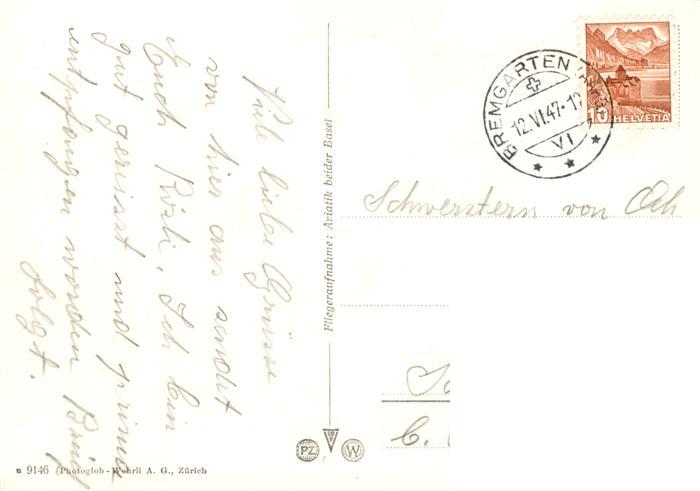 Viele liebe Grüsse
von hier aus sendet
Euch Rösli. Ich bin
gut gereisst und prima
entpfangen worden Brief
folgt.
Fliegeraufnahme: Aviatik beider Basel
BREMGARTEN
12.VI.47-12
VI
10 HELVETIA
Schwerstern von Ah
C.
PZ W
9146 Photoglob-Wehrli A. G., Zürich